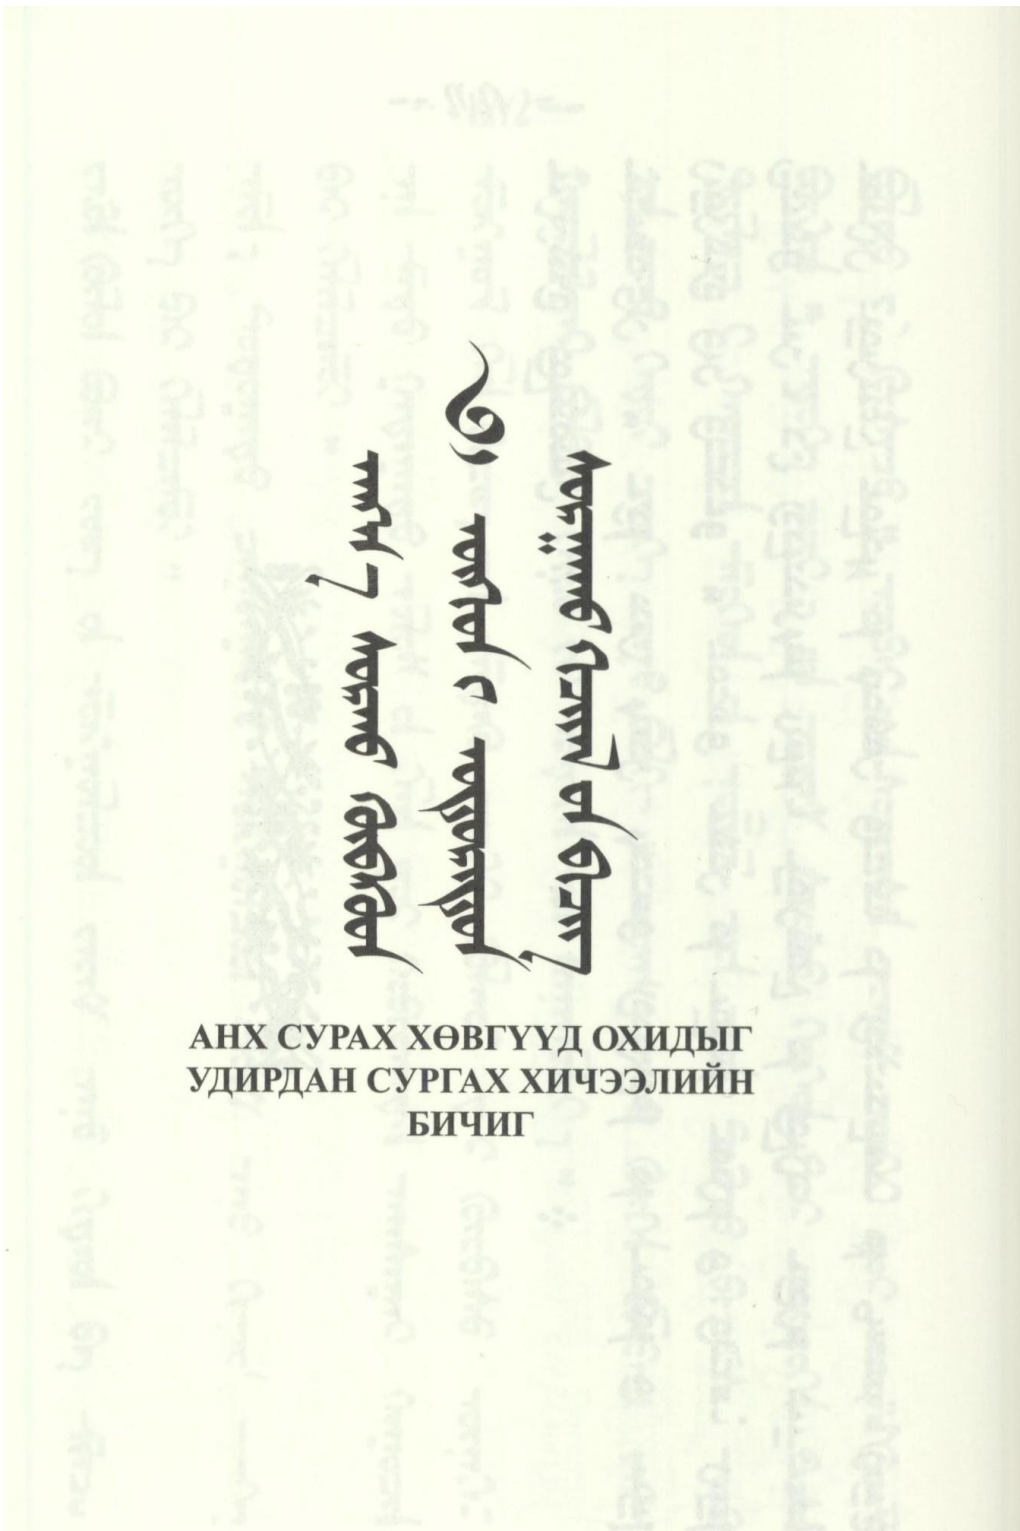 ᠀
ᠠᠩᠬ᠎ᠠ ᠰᠤᠷᠬᠤ ᠬᠥᠪᠡᠭᠦᠳ
ᠥᠬᠢᠳ ᠢ ᠤᠳᠤᠷᠢᠳᠤᠨ
ᠰᠤᠷᠭᠠᠬᠤ ᠬᠢᠴᠢᠶᠡᠯ ᠦᠨ ᠪᠢᠴᠢᠭ
АНХ СУРАХ ХӨВГҮҮД ОХИДЫГ
УДИРДАН СУРГАХ ХИЧЭЭЛИЙН
БИЧИГ